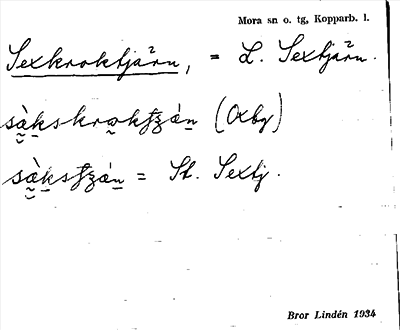 Mora sn o. tg, Kopparb. l.
Sexkroktjärn, = L. Sextjärn.
sàkskrokʈʐán (Oxbg)
sàksʈʐán = St. Sextj.
Bror Lindén 1934